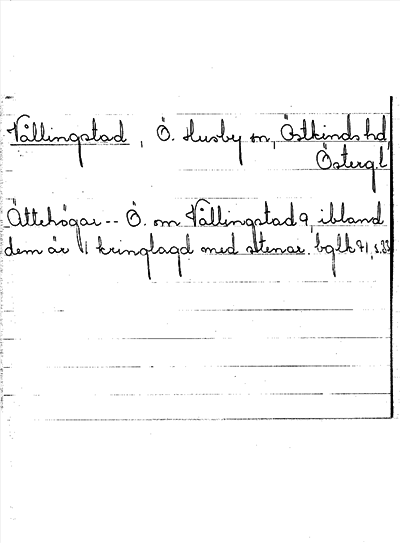 Vållingstad, Ö. Husby sn, Östkinds hd,
Östergl
Ättehögar -- Ö. om Vållingstad 9, ibland
dem är 1 kringlagd med stenar. bglk 91, s. 33